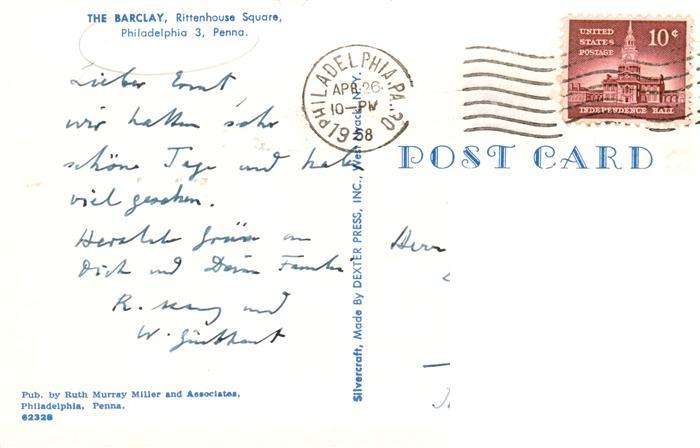 THE BARCLAY, Rittenhouse Square,
Philadelphia 3, Penna.
Lieber Ernst
wir hatten sehr
schöne Tage und haben
viel gesehen.
Herzliche Grüsse an
Dich und Deine Familie
R. und
W.
Pub. by Ruth Murray Miller and Associates,
Philadelphia, Penna.
62328
Silvercraft, Made By DEXTER PRESS, INC., West Nyack, N.Y.
PHILADELPHIA, PA. 30
APR 26
10-PM
1958
UNITED
STATES
POSTAGE
10¢
INDEPENDENCE HALL
POST CARD
Herrn